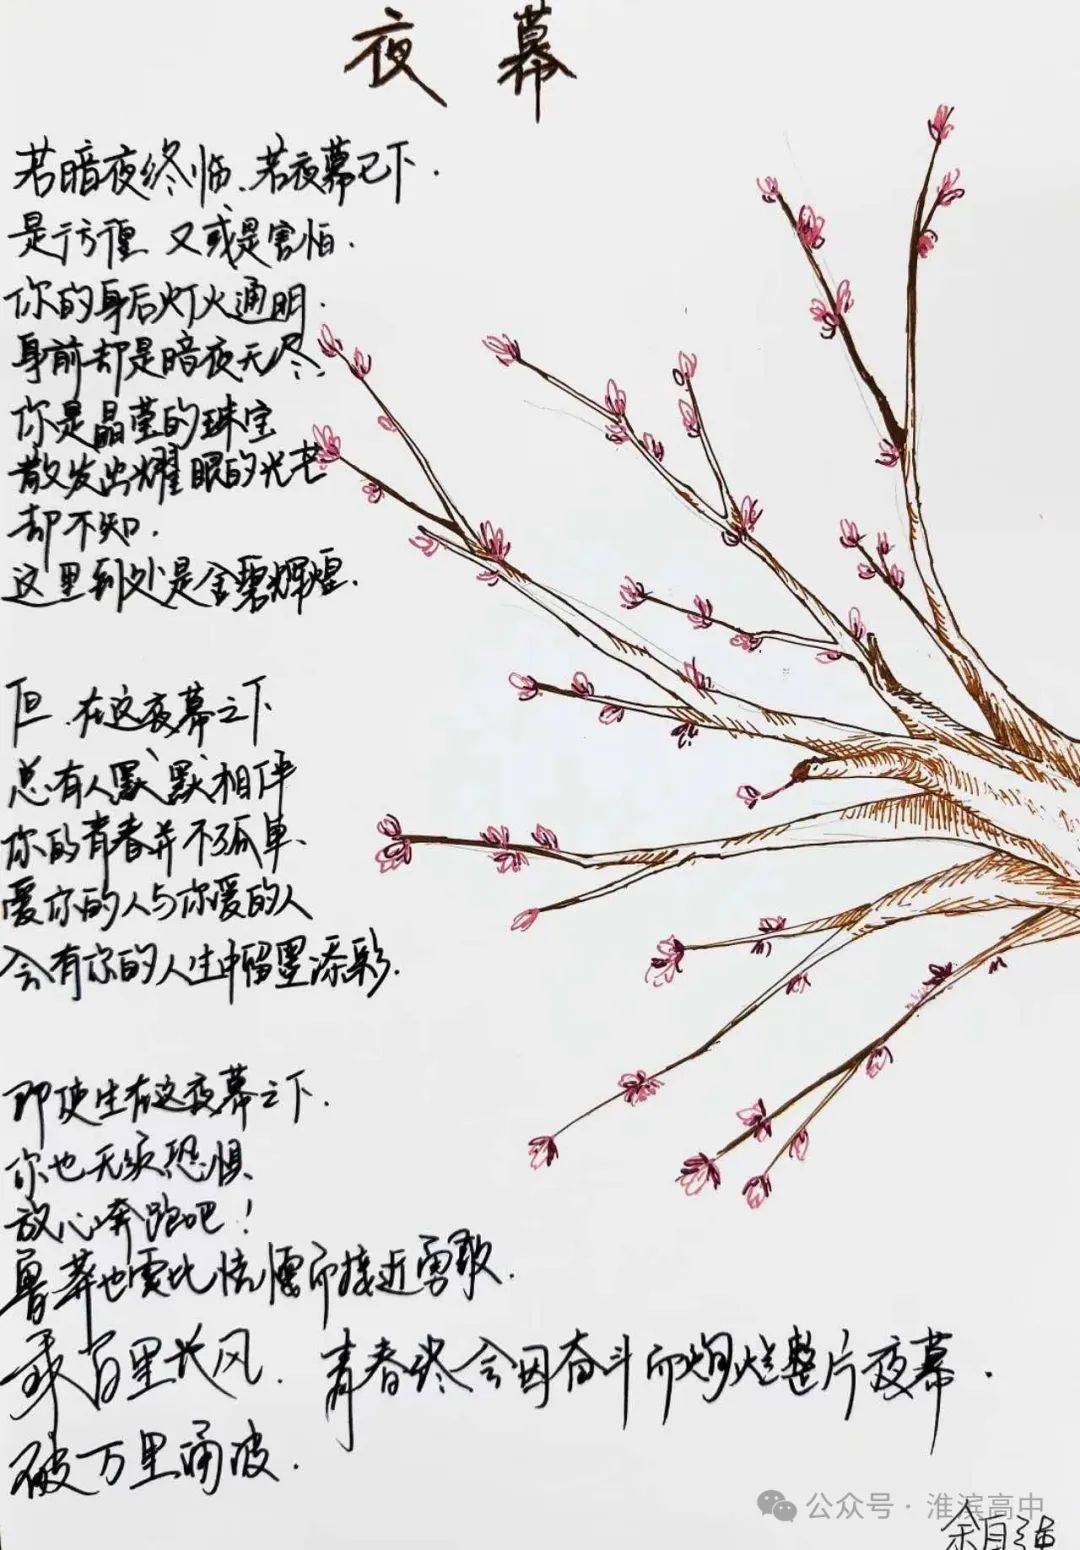 夜幕
若暗夜终临、若夜幕已下.
是彷徨 又或是害怕.
你的身后灯火通明.
身前却是暗夜无尽.
你是晶莹的珠宝
散发出耀眼的光芒
却不知.
这里到处是金碧辉煌.
但.在这夜幕之下
总有人默默相伴
你的青春并不孤单、
爱你的人与你爱的人
会有你的人生中留墨添彩.
即使生在这夜幕之下.
你也无须恐惧
放心奔跑吧!
鲁莽也要比怯懦而接近勇敢.
乘百里长风. 青春终会因奋斗而绚烂整片夜幕.
破万里涌波.
公众号·淮滨高中
余自